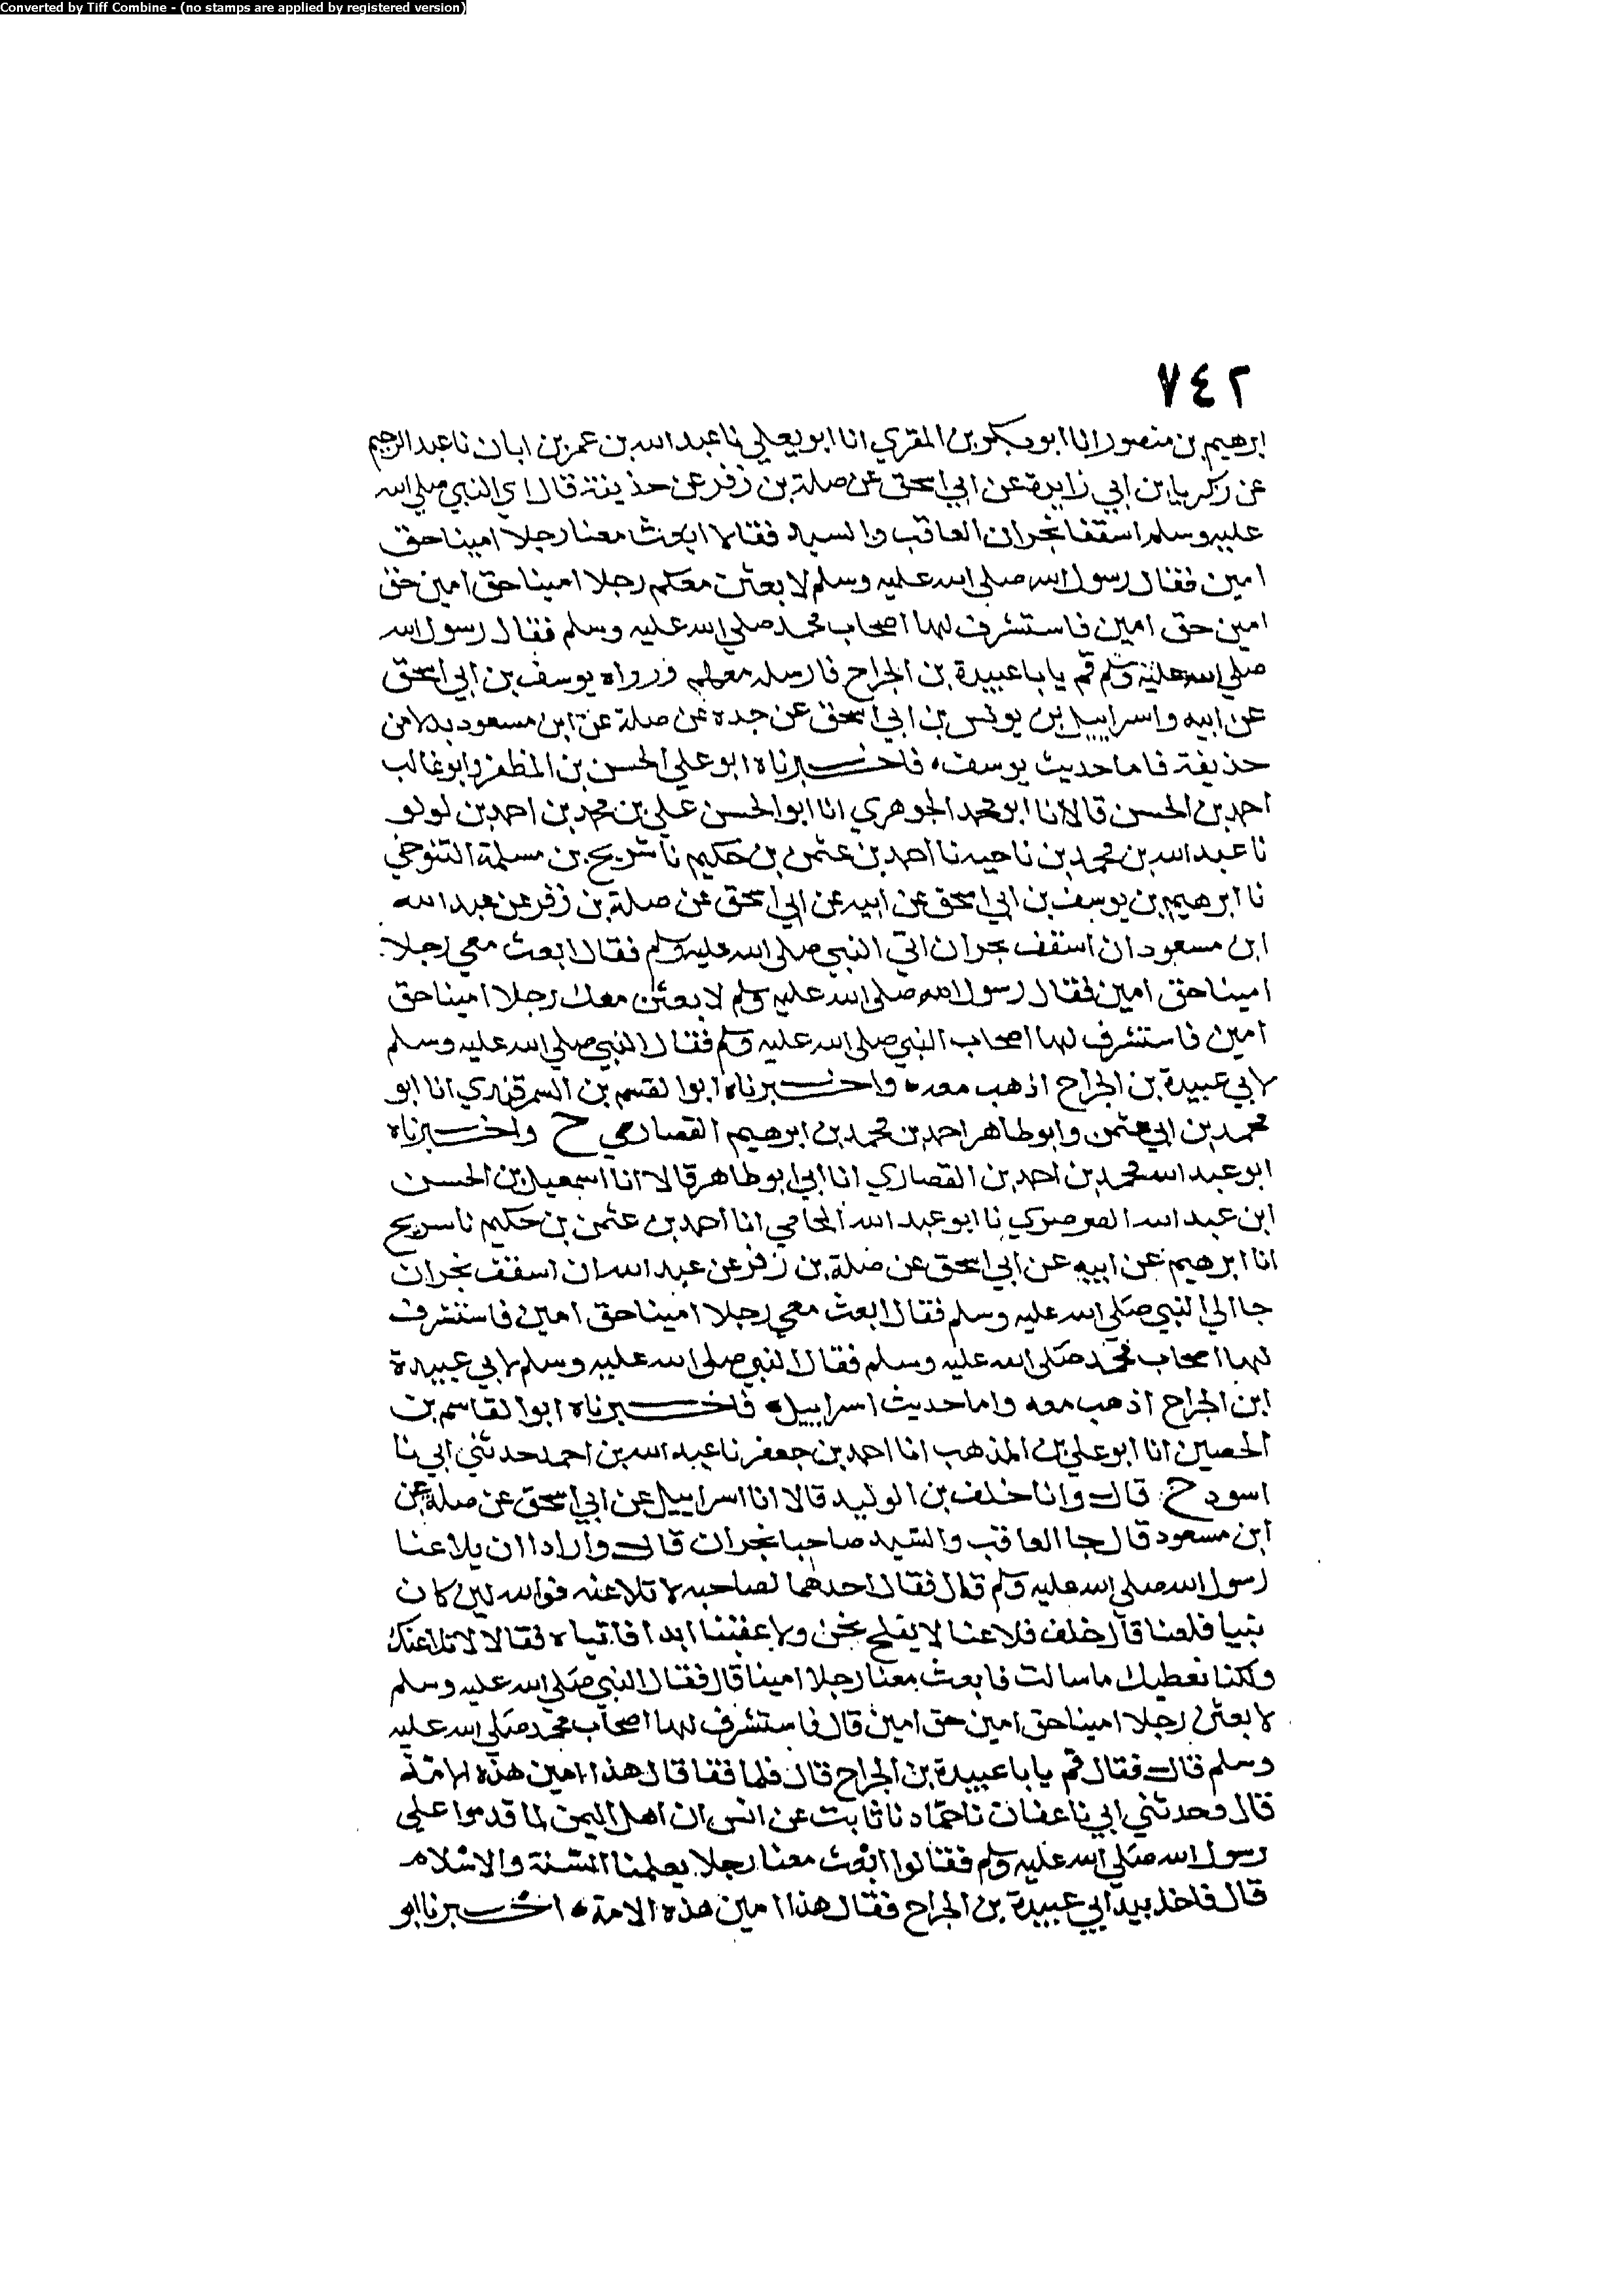 Converted by Tiff Combine - (no stamps are applied by registered version)
٧٤٢
ابرهيم بن منصور انا ابو بكر بن المقري انا ابو يعلي نا عبد الله بن عمر بن ابان نا عبد الرحيم
عن زكريا بن ابي زايرة عن ابي اسحق عن صلة بن زفر عن حذيفة قال اتي النبي صلي الله
عليه وسلم اسقفا نجران العاقب والسيد فقالا ابعث معنا رجلا امينا حق
امين فقال رسول الله صلي الله عليه وسلم لابعثن معكم رجلا امينا حق امين حق
امين حق امين فاستشرف لها اصحاب محمد صلي الله عليه وسلم فقال رسول الله
صلي الله عليه وسلم قم يا با عبيدة بن الجراح فارسله معهم ورواه يوسف بن ابي اسحق
عن ابيه واسراييل بن يونس بن ابي اسحق عن جده عن صلة عن ابن مسعود بدلا من
حذيفة فاما حديث يوسف، فاخبرناه ابو علي الحسن بن المظفر وابو غالب
احمد بن الحسن قالا انا ابو محمد الجوهري انا ابو الحسن علي بن محمد بن احمد بن لولو
نا عبد الله بن محمد بن ناحيه نا احمد بن عثمن بن حكيم نا شريح بن مسلمة التنوخي
نا ابرهيم بن يوسف بن ابي اسحق عن ابيه عن ابي اسحق عن صلة بن زفر عن عبد الله
ابن مسعود ان اسقف نجران اتي النبي صلي الله عليه وسلم فقال ابعث معي رجلا
امينا حق امين فقال رسول الله صلي الله عليه وسلم لابعثن معك رجلا امينا حق
امين فاستشرف لها اصحاب النبي صلي الله عليه وسلم فقال النبي صلي الله عليه وسلم
لابي عبيدة بن الجراح اذهب معه، واخبرناه ابو القسم بن السمرقندي انا ابو
محمد بن ابي عثمن وابو طاهر احمد بن محمد بن ابرهيم القصاري ح واخبرناه
ابو عبد الله محمد بن احمد بن القصاري انا ابي ابو طاهر قالا انا اسمعيل بن الحسن
ابن عبد الله الصرصري نا ابو عبد الله المحاملي انا احمد بن عثمن بن حكيم نا سريح
انا ابرهيم عن ابيه عن ابي اسحق عن صلة بن زفر عن عبد الله ان اسقف نجران
جا الي النبي صلي الله عليه وسلم فقال ابعث معي رجلا امينا حق امين فاستشرف
لها اصحاب محمد صلي الله عليه وسلم فقال النبي صلي الله عليه وسلم لابي عبيدة
ابن الجراح اذهب معه واما حديث اسراييل، فاخبرناه ابو القاسم بن
الحصين انا ابو علي بن المذهب انا احمد بن جعفر نا عبد الله بن احمد حدثني ابي نا
اسود ح قال وانا خلف بن الوليد قالا انا اسراييل عن ابي اسحق عن صلة عن
ابن مسعود قال جا العاقب والسيد صاحبا نجران قال وارادا ان يلاعنا
رسول الله صلي الله عليه وسلم قال فقال احدهما لصاحبه لا تلاعنه فوالله لين كان
نبيا فلعنا قال خلف فلاعنا لا يفلح نحن ولا عقبنا ابدا فاتياه فقالا لا نلاعنك
ولكنا نعطيك ما سالت فابعث معنا رجلا امينا قال فقال النبي صلي الله عليه وسلم
لابعثن رجلا امينا حق امين حق امين قال فاستشرف لها اصحاب محمد صلي الله عليه
وسلم قال فقال قم يا با عبيدة بن الجراح قال فلما قفا قال هذا امين هذه الامة
قال وحدثني ابي نا عفان نا حماد نا ثابت عن انس ان اهل اليمن لما قدموا علي
رسول الله صلي الله عليه وسلم فقالوا ابعث معنا رجلا يعلمنا السنة والاسلام
قال فاخذ بيد ابي عبيدة بن الجراح فقال هذا امين هذه الامة، اخبرنا ابو